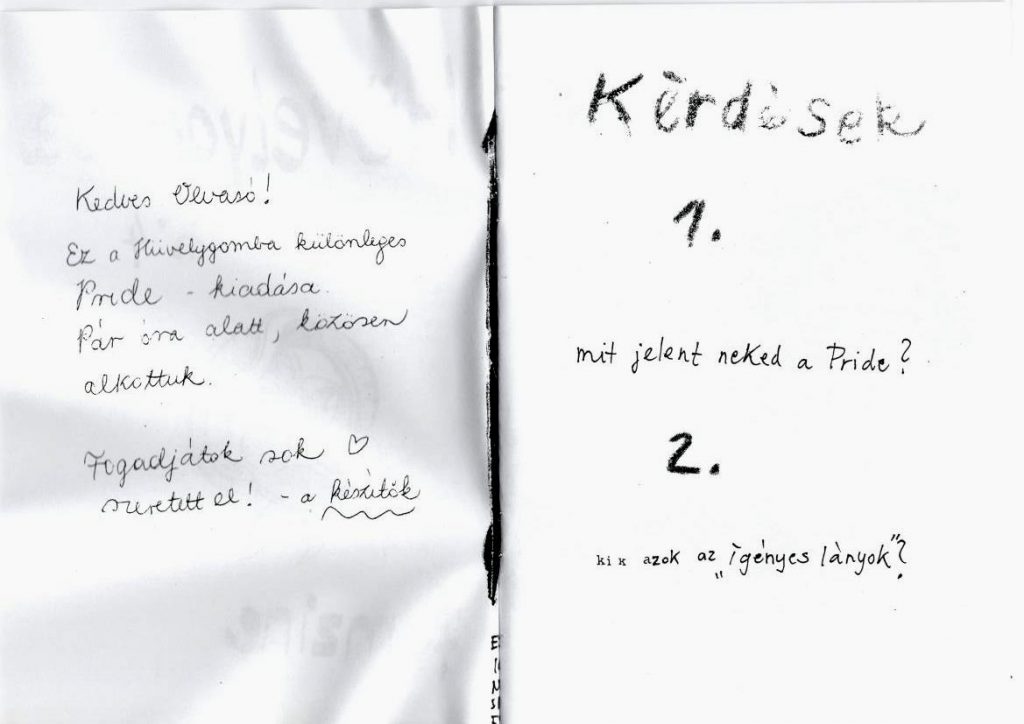 Kedves Olvasó!
Ez a Hüvelygomba különleges
Pride - kiadása.
Pár óra alatt, közösen
alkottuk.
Fogadjátok sok ♡
szeretettel! - a készítők
Kérdések
1.
mit jelent neked a Pride?
2.
kik azok az „igényes lányok”?